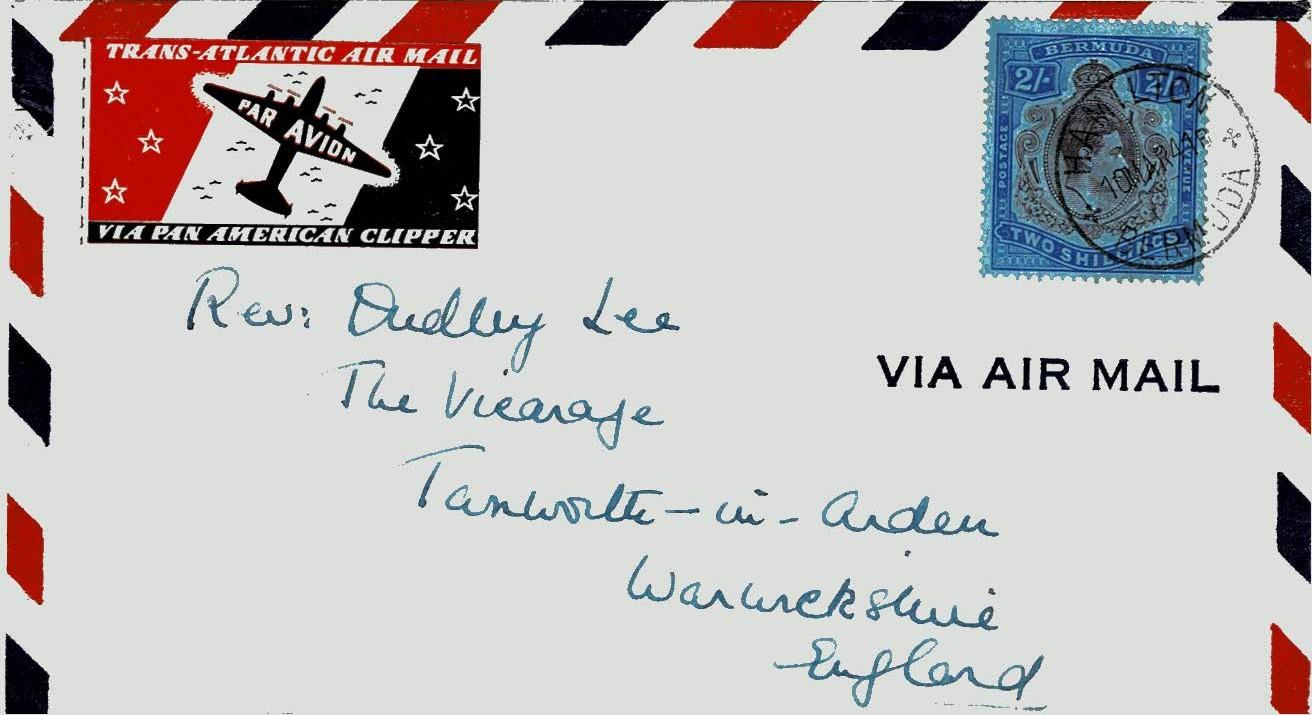 TRANS-ATLANTIC AIR MAIL
PAR AVION
VIA PAN AMERICAN CLIPPER
BERMUDA
2/- 2/-
POSTAGE REVENUE
TWO SHILLINGS
HAMILTON
BERMUDA
Rev: Dudley Lee
The Vicarage
VIA AIR MAIL
Tanworth-in-Arden
Warwickshire
England